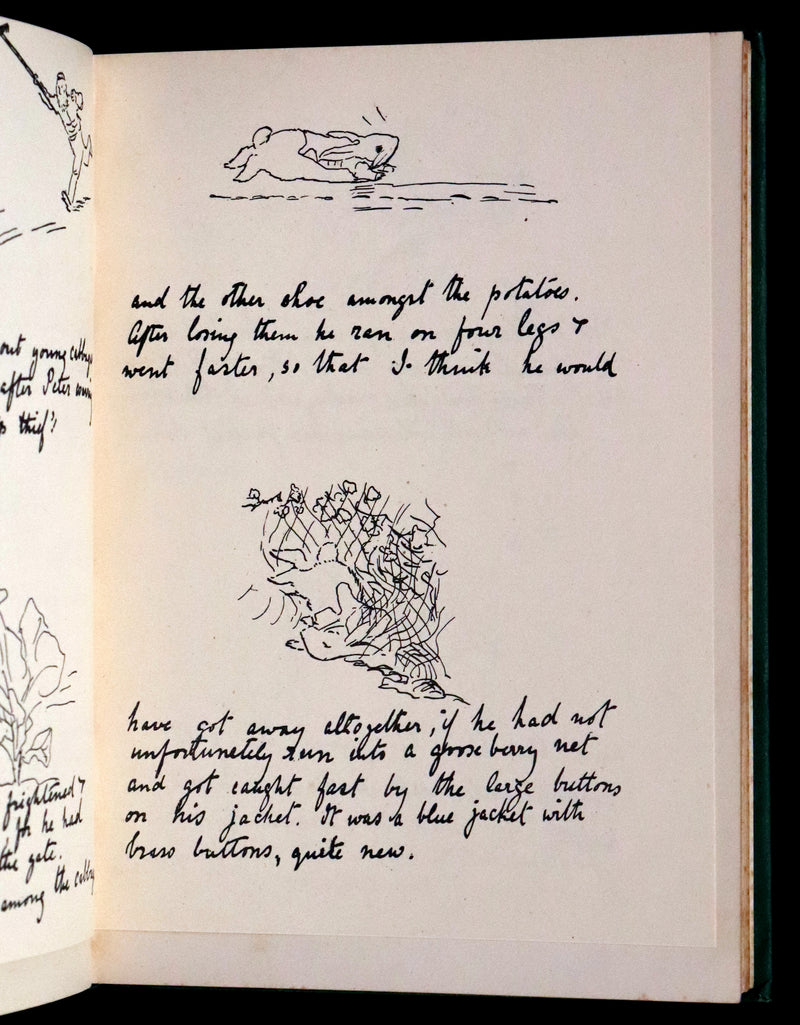 out young cabbag
after Peter
thief'!
frightened &
for he had
the gate.
among the cabb
and the other shoe amongst the potatoes.
After losing them he ran on four legs &
went faster, so that I think he would
have got away altogether, if he had not
unfortunately run into a gooseberry net
and got caught fast by the large buttons
on his jacket. It was a blue jacket with
brass buttons, quite new.